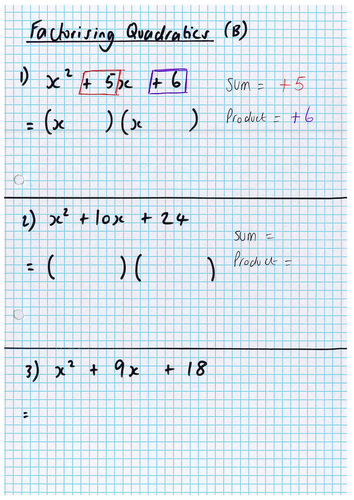 Factorising Quadratics (B)
1) x² + 5x + 6 Sum = +5
= (x )(x ) Product = +6
2) x² + 10x + 24
Sum =
= ( )( ) Product =
3) x² + 9x + 18
=